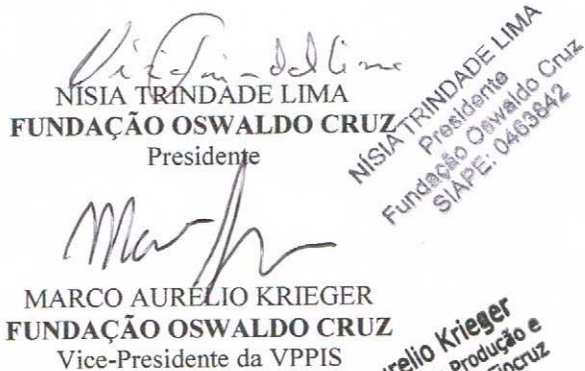 Nísia Trindade Lima
NÍSIA TRINDADE LIMA
FUNDAÇÃO OSWALDO CRUZ
Presidente
NÍSIA TRINDADE LIMA
Presidente
Fundação Oswaldo Cruz
SIAPE: 0463842
MARCO AURÉLIO KRIEGER
FUNDAÇÃO OSWALDO CRUZ
Vice-Presidente da VPPIS
urelio Krieger
Produção e
Fiocruz